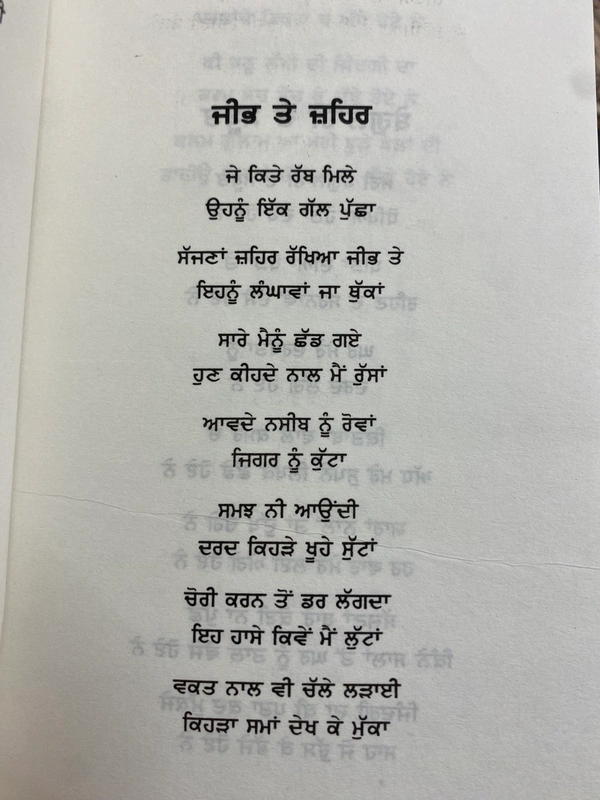 ਜੀਭ ਤੇ ਜ਼ਹਿਰ
ਜੇ ਕਿਤੇ ਰੱਬ ਮਿਲੇ
ਉਹਨੂੰ ਇੱਕ ਗੱਲ ਪੁੱਛਾ
ਸੱਜਣਾਂ ਜ਼ਹਿਰ ਰੱਖਿਆ ਜੀਭ ਤੇ
ਇਹਨੂੰ ਲੰਘਾਵਾਂ ਜਾ ਥੁੱਕਾਂ
ਸਾਰੇ ਮੈਨੂੰ ਛੱਡ ਗਏ
ਹੁਣ ਕੀਹਦੇ ਨਾਲ ਮੈਂ ਰੁੱਸਾਂ
ਆਵਦੇ ਨਸੀਬ ਨੂੰ ਰੋਵਾਂ
ਜਿਗਰ ਨੂੰ ਕੁੱਟਾ
ਸਮਝ ਨੀ ਆਉਂਦੀ
ਦਰਦ ਕਿਹੜੇ ਖੂਹੇ ਸੁੱਟਾਂ
ਚੋਰੀ ਕਰਨ ਤੋਂ ਡਰ ਲੱਗਦਾ
ਇਹ ਹਾਸੇ ਕਿਵੇਂ ਮੈਂ ਲੁੱਟਾਂ
ਵਕਤ ਨਾਲ ਵੀ ਚੱਲੇ ਲੜਾਈ
ਕਿਹੜਾ ਸਮਾਂ ਦੇਖ ਕੇ ਮੁੱਕਾ